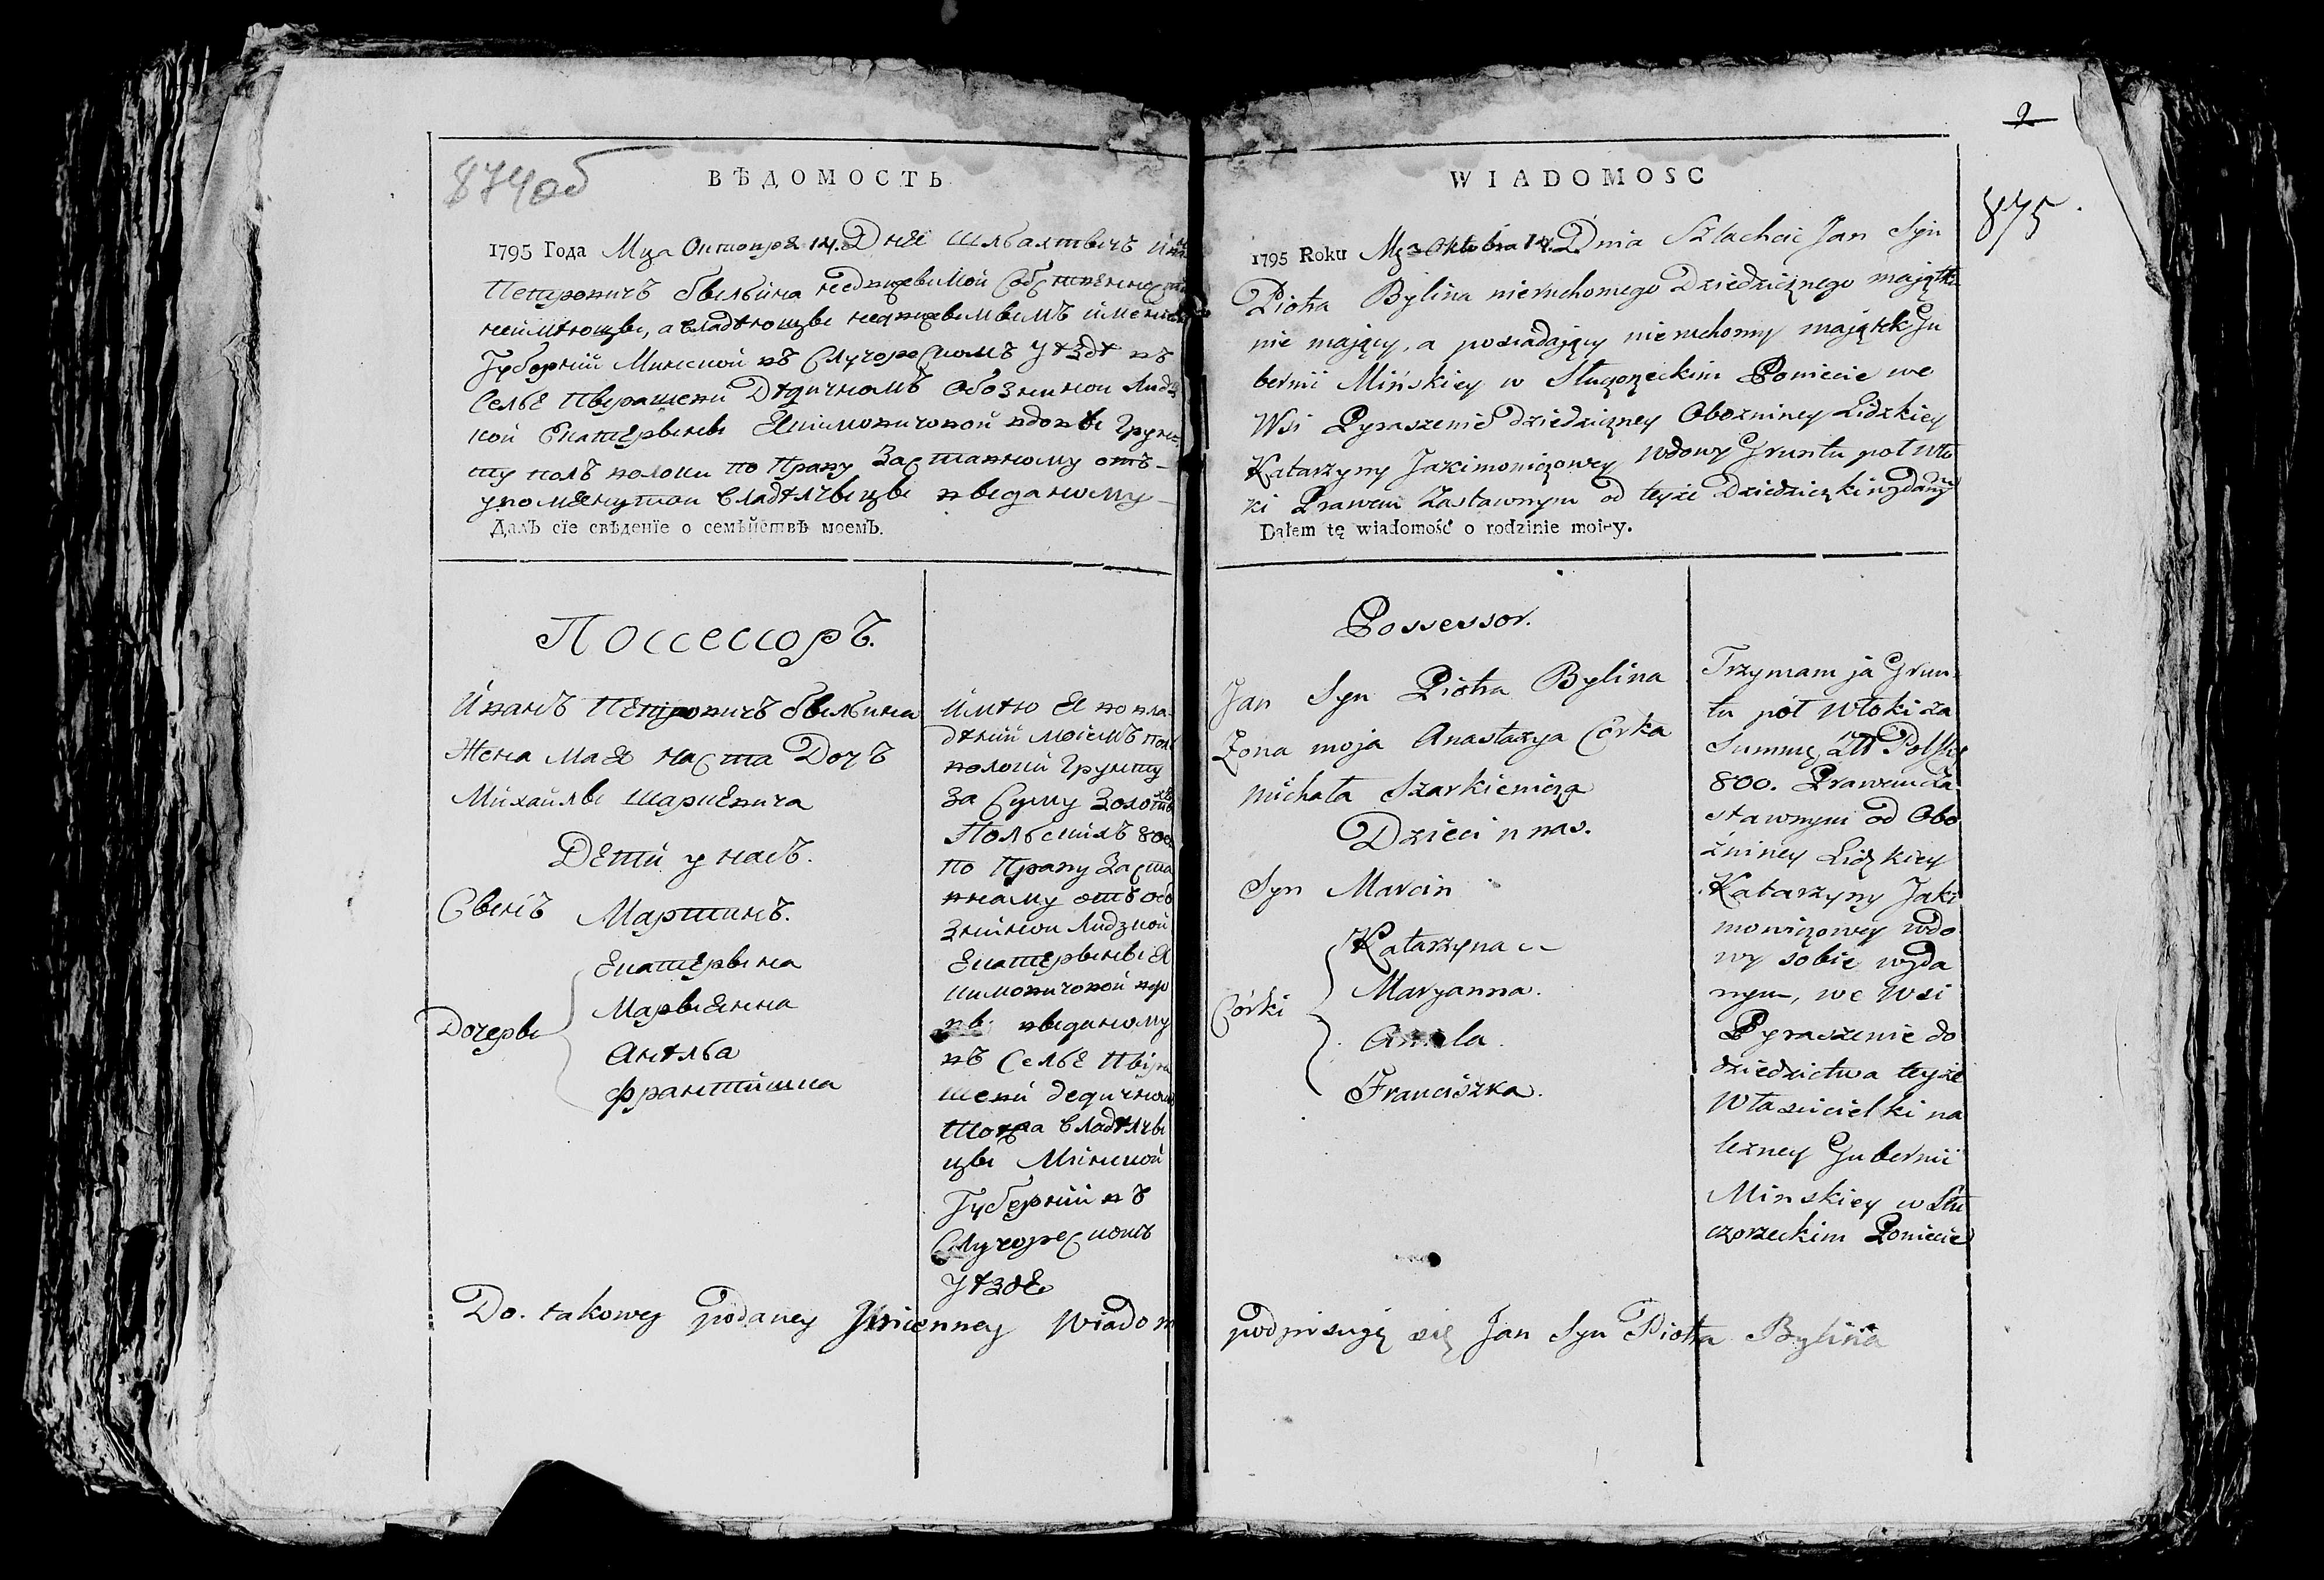 874об
ВѢДОМОСТЬ
1795 Года Мца Октопря 14. Дня Шляхтичъ Иванъ
Петровичъ Былына недвижевимой Собственности
неимѣющы, а владѣющы недвижевымъ имениемъ
Губернiи Минской въ Случорескомъ Уѣздѣ въ
Селѣ Пырашеви Дѣдичномъ Обознинои Лидз
кой Екатерыны Якимовичовой вдовы Грун
ту полъ волоки по Праву Заставному отъ
упомянутои владѣлчыцы выданому
Далъ сїе свѣденїе о семѣйствѣ моемЪ.
ПоссессорЪ.
Иванъ Петровичъ Былына
Жена мая Наста Дочъ
Михайлы Шаркевича
Дети у насъ.
Сынъ Мартинъ.
Екатерына
Марыянна
Дочеры
Анѣля
Франтишка
Имѣю я во вла
дѣнiи моiемъ пол
волоки Грунту
за Суму Золотыхъ
Польскихъ 800
по Праву Заста
вному отъ Обо
знинои Лидзкой
Екатерыны Я
кимовичовой вдо
вы выданому
въ Селѣ Пыра
шеви дедичном
тоѣжа владѣлчы
цы Минской
Губернiи въ
Случорескомъ
Уѣздѣ
Do takowey podaney Imienney Wiadom
2
875.
WIADOMOSC
1795 Roku Mca Oktobra 14. Dnia Szlachcic Jan Syn
Piotra Bylina nieruchomego Dziedzicznego majątku
nie mający, a posiadający nieruchomy majątek Gu
bernii Mińskiey w Słuczoreckim Powiecie we
Wsi Pyraszewie Dziedziczney Oboźniney Lidzkiey
Katarzyny Jakimowiczowey Wdowy Gruntu pół wło
ki Prawem Zastawnym od teyże Dziedziczki wydanym
Dałem tę wiadomość o rodzinie moiey.
Possessor.
Jan Syn Piotra Bylina
Żona moja Anastazya Córka
Michała Szarkiewicza
Dzieci u nas.
Syn Marcin
Katarzyna
Maryanna.
Córki
Aniela.
Franciszka.
Trzymam ja Grun
tu pół włoki za
Summę Złł Polskie
800. Prawem Za
stawnym od Obo
źniney Lidzkiey
Katarzyny Jaki
mowiczowey wdo
wy sobie wyda
nym, we Wsi
Pyraszewie do
dziedzictwa teyże
Własicielki na
leżney Gubernii
Minskiey w Słu
czorzeckim Powiecie
podpisuję się Jan Syn Piotra Bylina